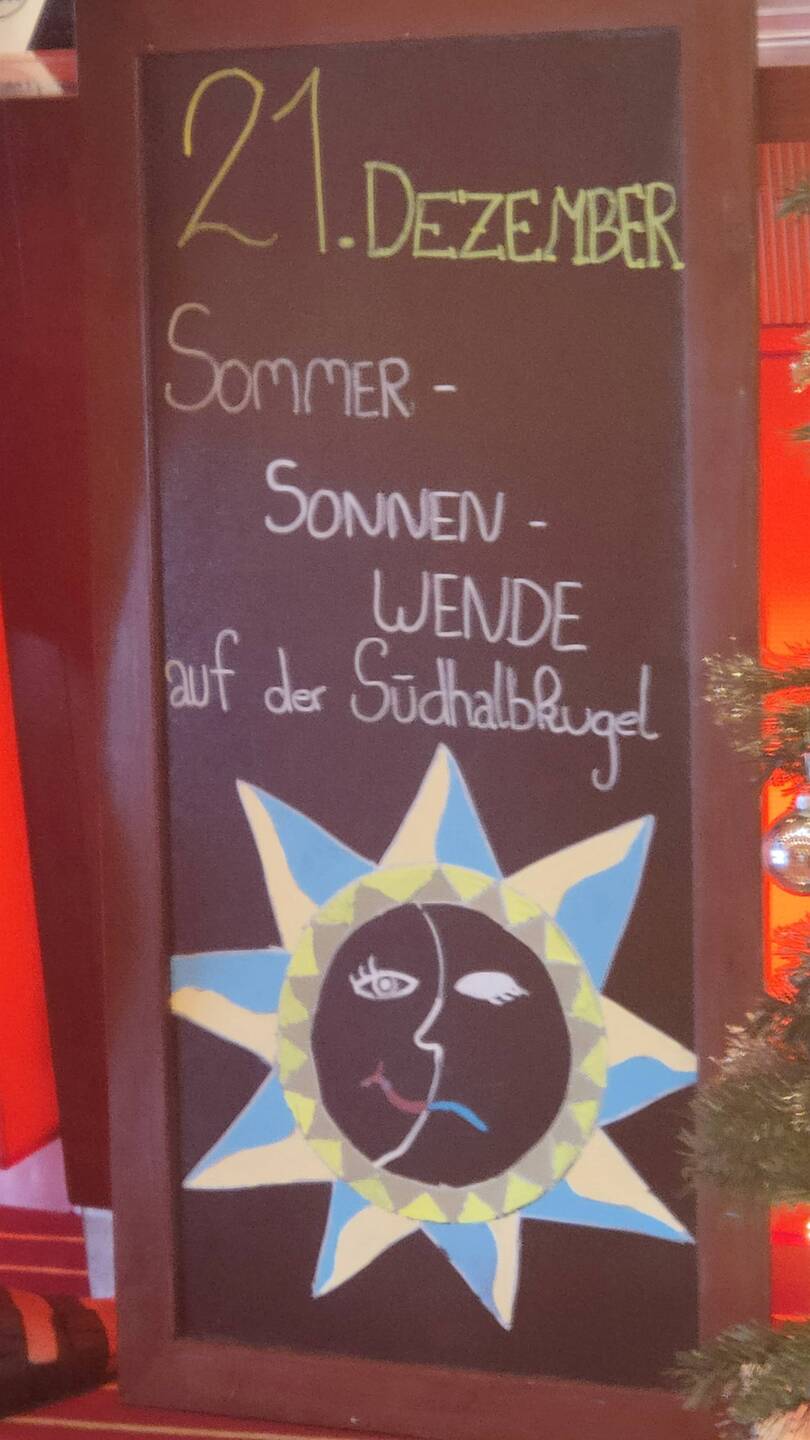 21. DEZEMBER
SOMMER-
SONNEN-
WENDE
auf der Südhalbkugel